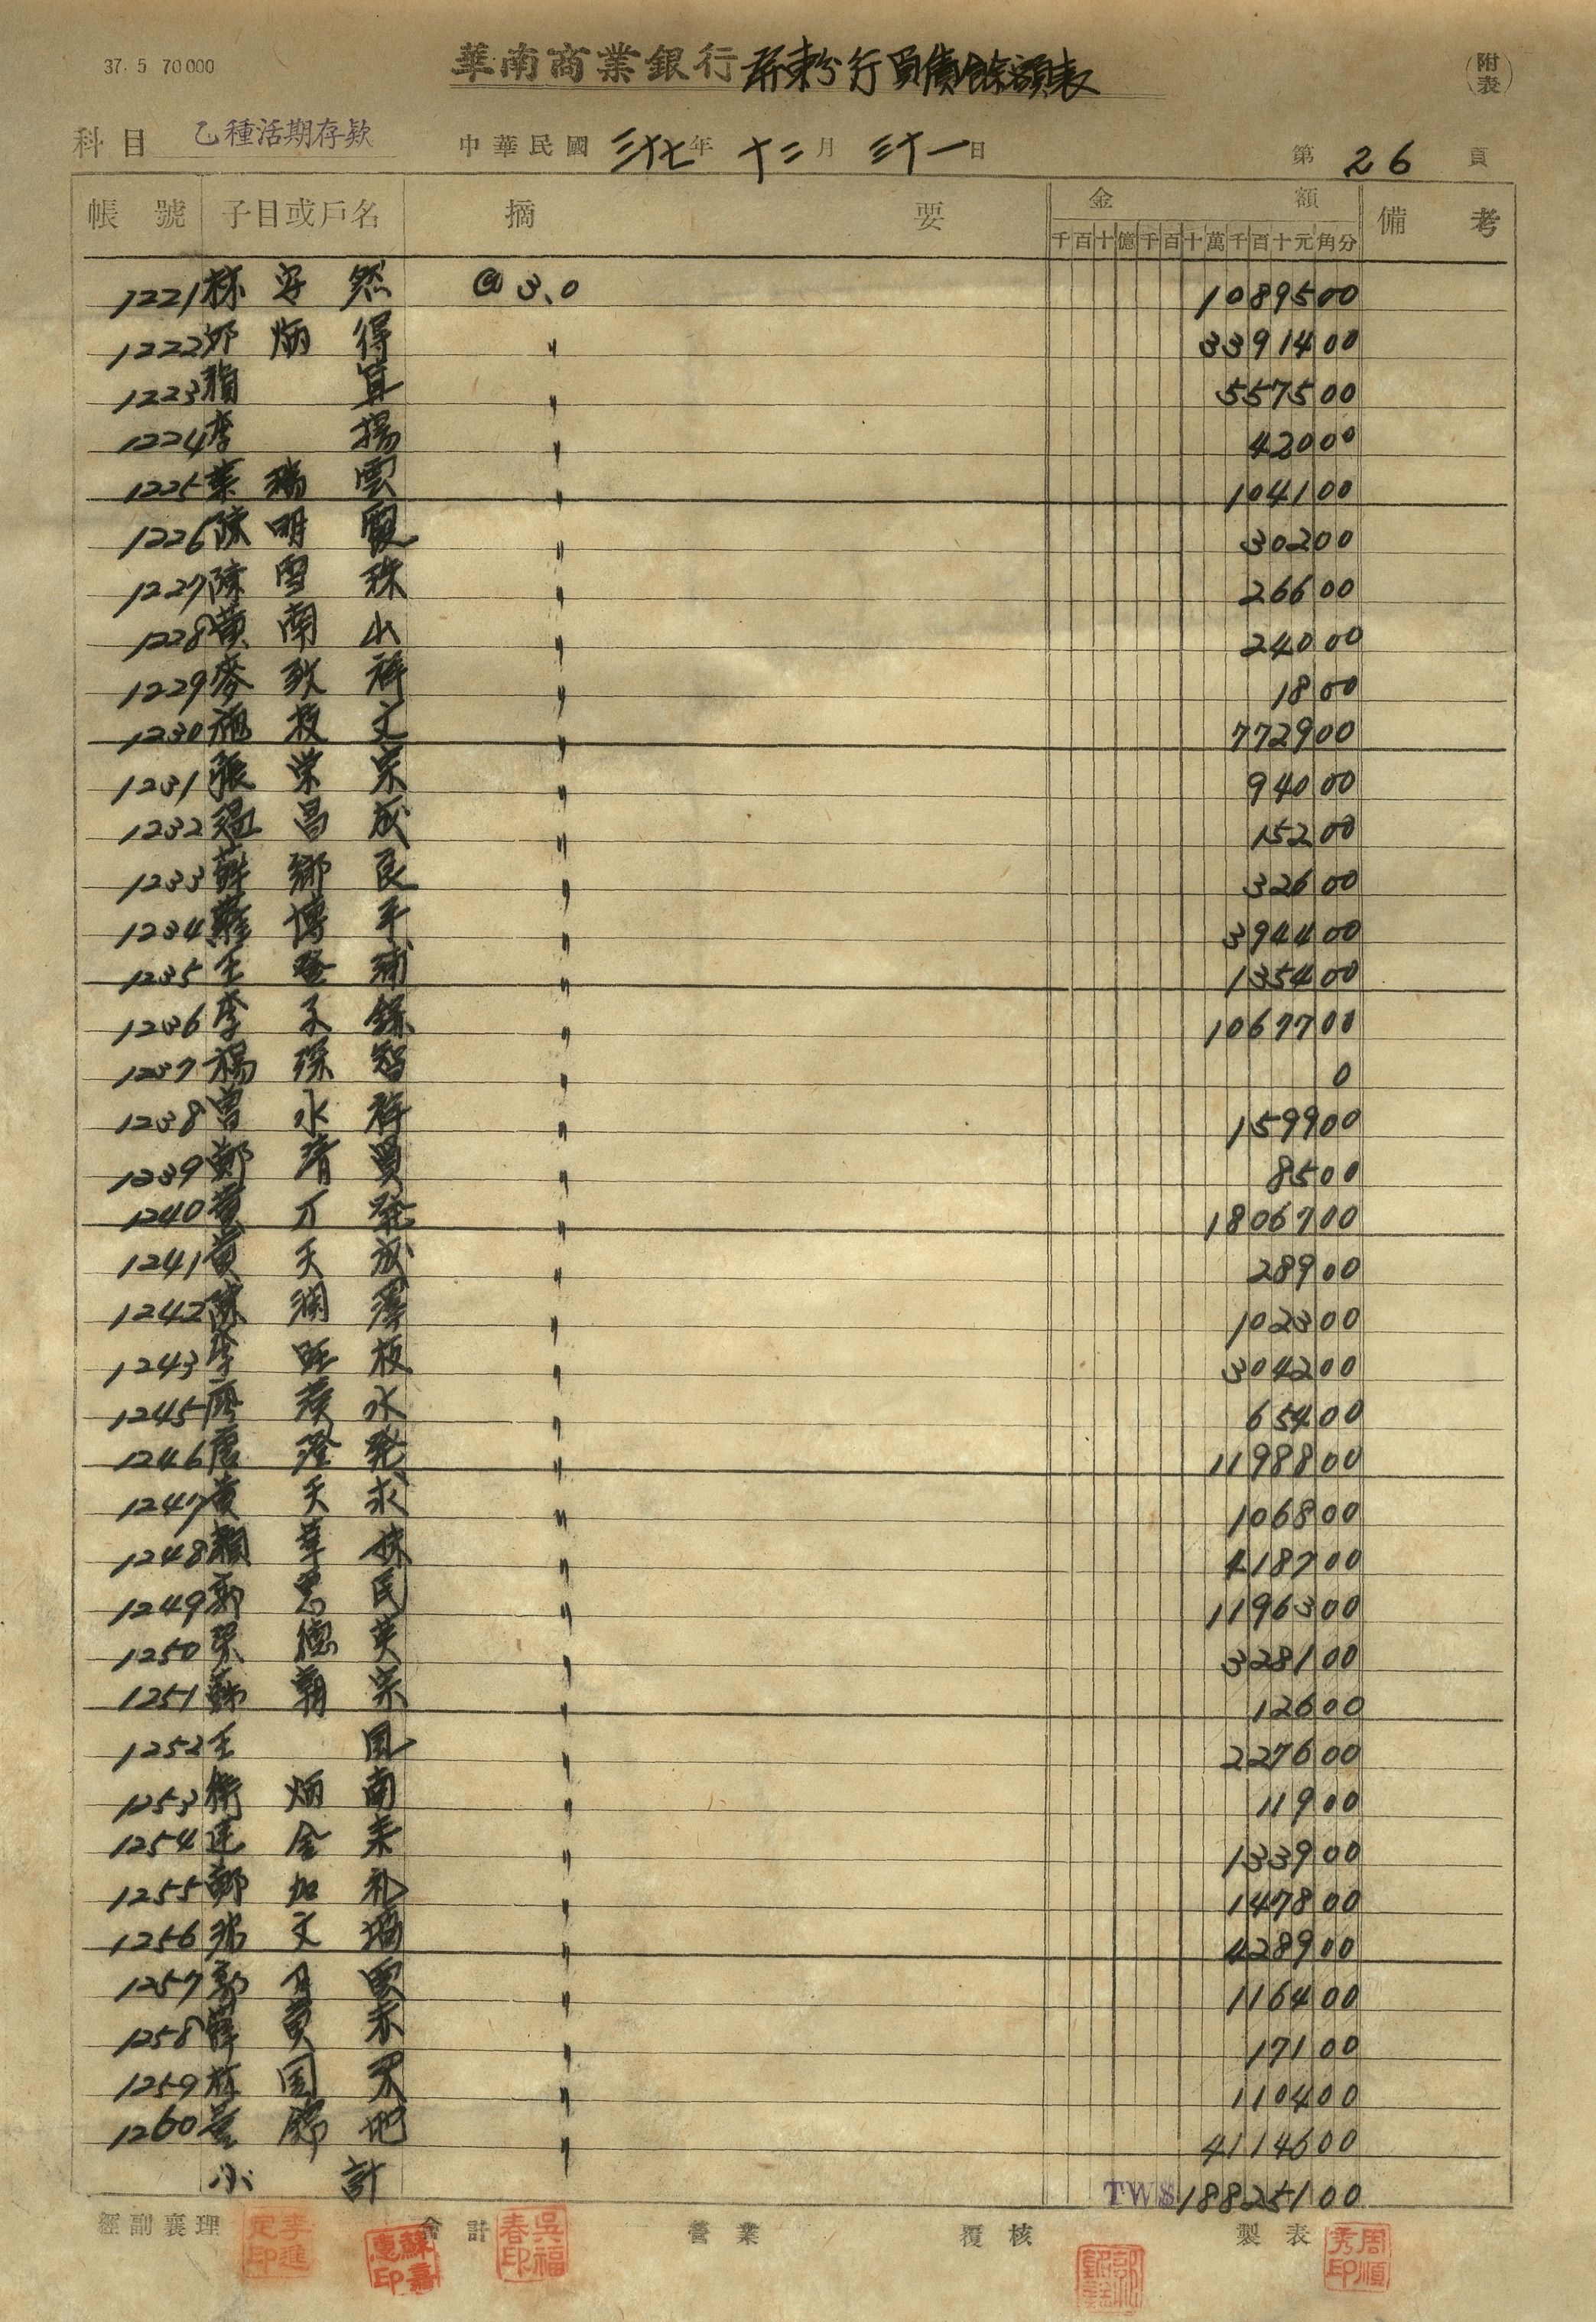 37. 5 70000
華南商業銀行屏東分行負債餘額表
(附表)
科目 乙種活期存款 中華民國 三十七年 十二月 三十一日 第 26 頁
帳號 子目或戶名 摘要 金額 備考
千百十億千百十萬千百十元角分
1221 林安然 @3.0 1089500
1222 邱炳得 〃 3391400
1223 賴 〃 557500
1224 李揚 〃 42000
1225 葉瑞雲 〃 104100
1226 陳明霞 〃 30200
1227 陳雪珠 〃 26600
1228 黃南山 〃 24000
1229 麥致祥 〃 1800
1230 施枝文 〃 772900
1231 張榮宗 〃 94000
1232 溫昌成 〃 15200
1233 薛鄉良 〃 32600
1234 羅博平 〃 394400
1235 王登浦 〃 135400
1236 李子錄 〃 1067700
1237 楊琛智 〃 0
1238 曾永祥 〃 159900
1239 鄭清 〃 8500
1240 黃才發 〃 1806700
1241 黃天成 〃 28900
1242 陳潤澤 〃 102300
1243 李旺板 〃 304200
1245 廖漢水 〃 65400
1246 唐澄発 〃 1198800
1247 黃天求 〃 106800
1248 賴華 〃 418700
1249 郭恩民 〃 1196300
1250 梁德英 〃 328100
1251 蘇朝宗 〃 12600
1252 王 〃 227600
1253 衛炳南 〃 11900
1254 連金 〃 133900
1255 鄭加禮 〃 147800
1256 張文 〃 428900
1257 郭月雲 〃 116400
1258 薛黃赤 〃 17100
1259 林国 〃 110400
1260 錦地 〃 4114600
小計 TW$18825100
經副襄理 會計 營業 覆核 製表
李進定印 蘇嘉惠印 吳福春印 周順秀印